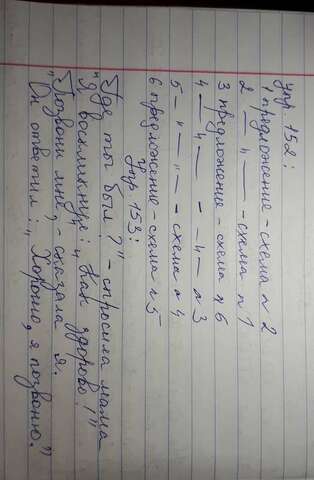 упр. 152:
1 предложение - схема № 2
2 — " — - схема № 1
3 предложение - схема № 6
4 — " — - " - № 3
5 — " — - схема № 4
6 предложение - схема № 5
Упр 153:
„Где ты был?" - спросила мама
Я воскликнул: „Как здорово!"
„Позвони мне", - сказала я.
Он ответил: „Хорошо, я позвоню."